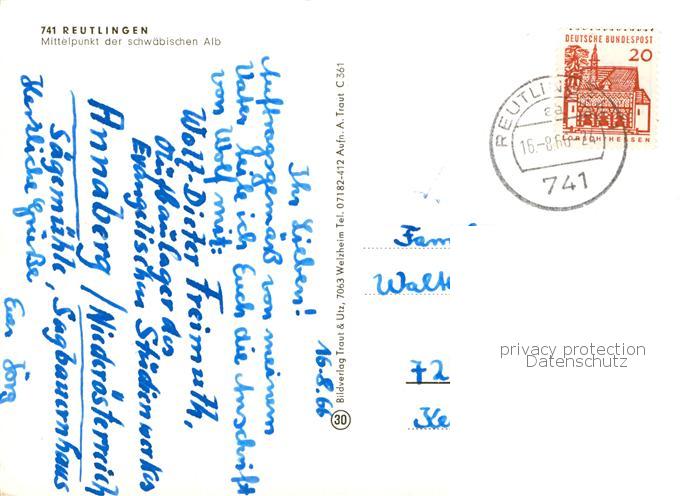 741 REUTLINGEN
Mittelpunkt der schwäbischen Alb
16.8.66
Ihr Lieben!
Auftragsgemäß von meinem
Vater teile ich Euch die Anschrift
von Wolf mit:
Wolf-Dieter Freimuth,
Aufbaulager des
Evangelischen Studienwerkes
Annaberg / Niederösterreich
Sägemühle, Sagbauernhaus
Herzliche Grüße
Euer Jörg
Bildverlag Traut & Utz, 7063 Welzheim Tel. 07182-412 Aufn. A. Traut C 361
30
DEUTSCHE BUNDESPOST
20
LORSCH · HESSEN
REUTLINGEN
16.-8.66
741
Fam
Walt
72
Ke
privacy protection
Datenschutz